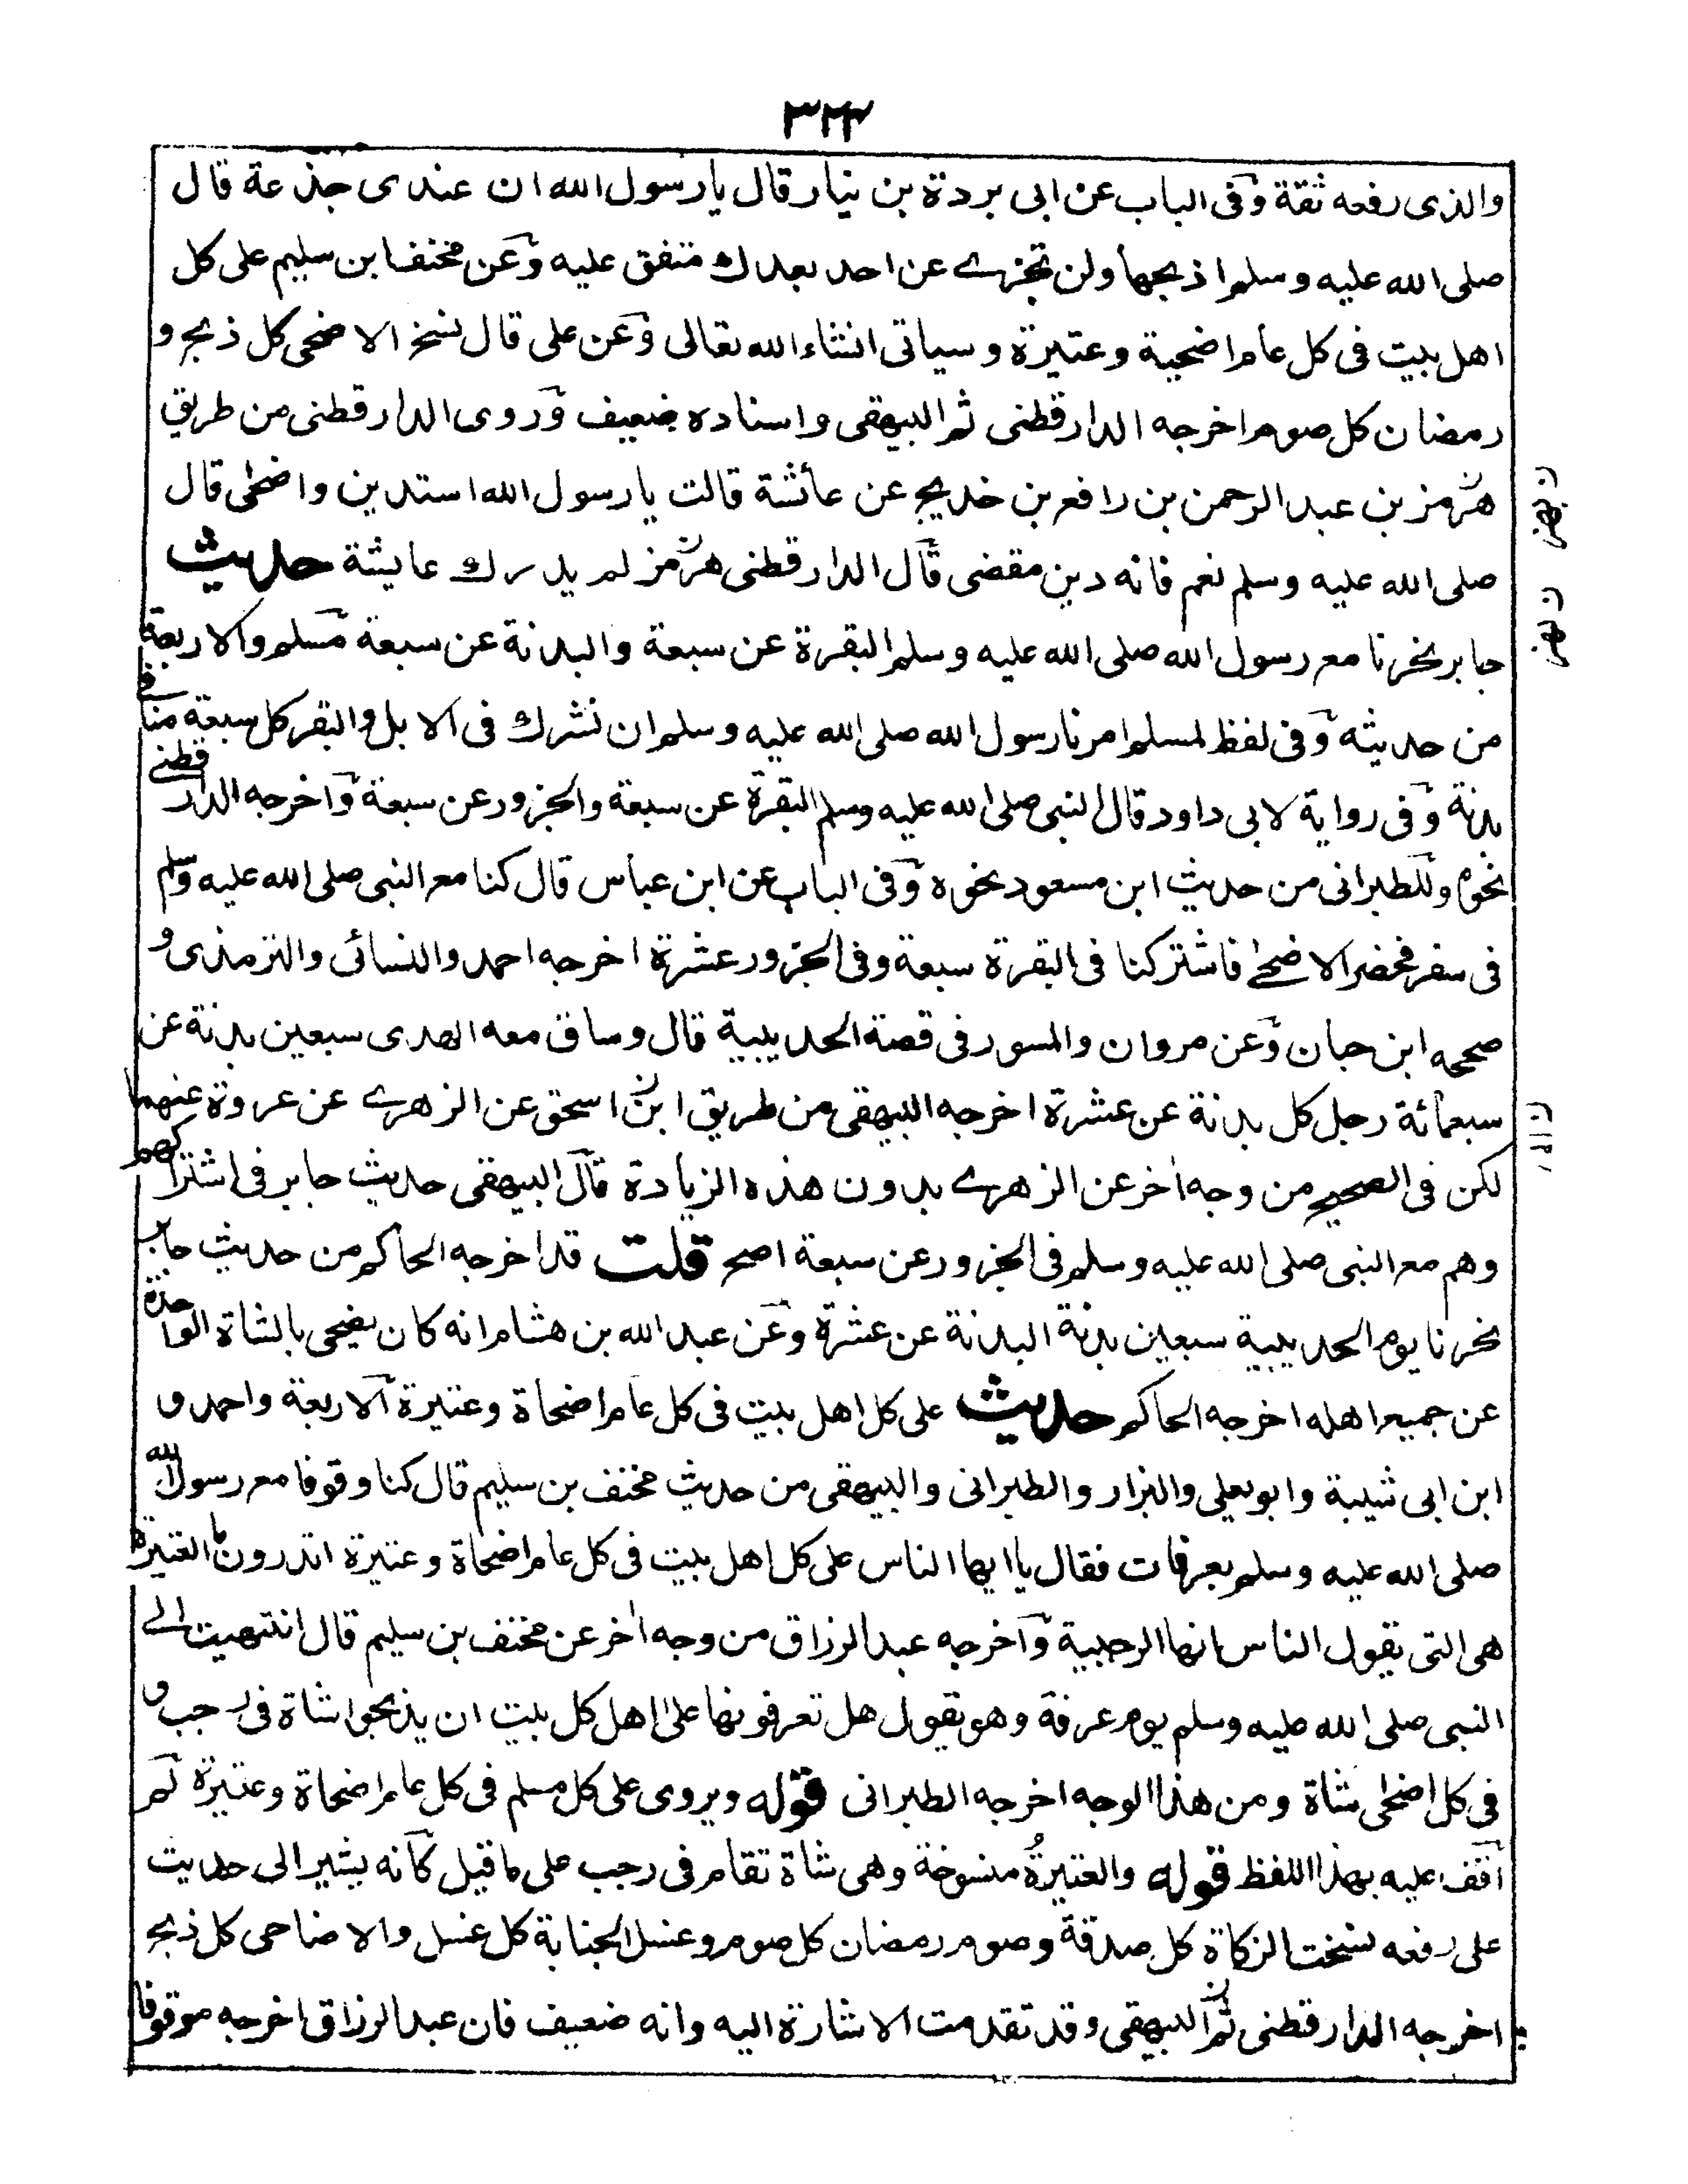 ۳۲۴
والذى رفعه ثقة وفى الباب عن ابى بردة بن نيار قال يا رسول الله ان عندى جذعة قال
صلى الله عليه وسلم اذبحها ولن تجزے عن احد بعدك متفق عليه وعن مخنف بن سليم على كل
اهل بيت فى كل عام اضحية وعتيرة وسياتى انشاء الله تعالى وعن على قال نسخ الاضحى كل ذبح و
رمضان كل صوم اخرجه الدارقطنى ثم البيهقى واسناده ضعيف وروى الدارقطنى من طريق
هرمز بن عبد الرحمن بن رافع بن خديج عن عائشة قالت يا رسول الله استدين واضحى قال
صلى الله عليه وسلم نعم فانه دين مقضى قال الدارقطنى هرمز لم يدرك عايشة حديث
جابر نحرنا مع رسول الله صلى الله عليه وسلم البقرة عن سبعة والبدنة عن سبعة مسلم والاربعة
من حديثه وفى لفظ لمسلم امرنا رسول الله صلى الله عليه وسلم ان نشرك فى الابل والبقر كل سبعة منا فے
بدنة وفى رواية لابى داود قال النبى صلى الله عليه وسلم البقرة عن سبعة والجزور عن سبعة واخرجه الدارقطنے
نحوه وللطبرانى من حديث ابن مسعود نحوه وفى الباب عن ابن عباس قال كنا مع النبى صلى الله عليه وسلم
فى سفر فحضر الاضحے فاشتركنا فى البقرة سبعة وفى الجزور عشرة اخرجه احمد والنسائى والترمذى و
صححه ابن حبان وعن مروان والمسور فى قصة الحديبية قال وساق معه الهدى سبعين بدنة عن
سبعمائة رجل كل بدنة عن عشرة اخرجه البيهقى من طريق ابن اسحق عن الزهرے عن عروة عنهما
لكن فى الصحيح من وجه اخر عن الزهرے بدون هذه الزيادة قال البيهقى حديث جابر فى اشتراكهم
وهم مع النبى صلى الله عليه وسلم فى الجزور عن سبعة اصح قلت قد اخرجه الحاكم من حديث جابر
نحرنا يوم الحديبية سبعين بدنة البدنة عن عشرة وعن عبد الله بن هشام انه كان يضحى بالشاة الواحدة
عن جميع اهله اخرجه الحاكم حديث على كل اهل بيت فى كل عام اضحاة وعتيرة الاربعة واحمد و
ابن ابى شيبة وابو يعلى والبزار والطبرانى والبيهقى من حديث مخنف بن سليم قال كنا وقوفا مع رسول الله
صلى الله عليه وسلم بعرفات فقال يا ايها الناس على كل اهل بيت فى كل عام اضحاة وعتيرة اتدرون ما العتيرة
هى التى يقول الناس انها الرجبية واخرجه عبد الرزاق من وجه اخر عن مخنف بن سليم قال انتهيت الے
النبى صلى الله عليه وسلم يوم عرفة وهو يقول هل تعرفونها على اهل كل بيت ان يذبحوا شاة فى رجب و
فى كل اضحى شاة ومن هذا الوجه اخرجه الطبرانى قوله ويروى على كل مسلم فى كل عام اضحاة وعتيرة لم
اقف عليه بهذا اللفظ قوله والعتيرة منسوخة وهى شاة تقام فى رجب على ما قيل كانه يشير الى حديث
على رفعه نسخت الزكاة كل صدقة وصوم رمضان كل صوم وغسل الجنابة كل غسل والاضاحى كل ذبح
اخرجه الدارقطنى ثم البيهقى وقد تقدمت الاشارة اليه وانه ضعيف فان عبد الرزاق اخرجه موقوفا